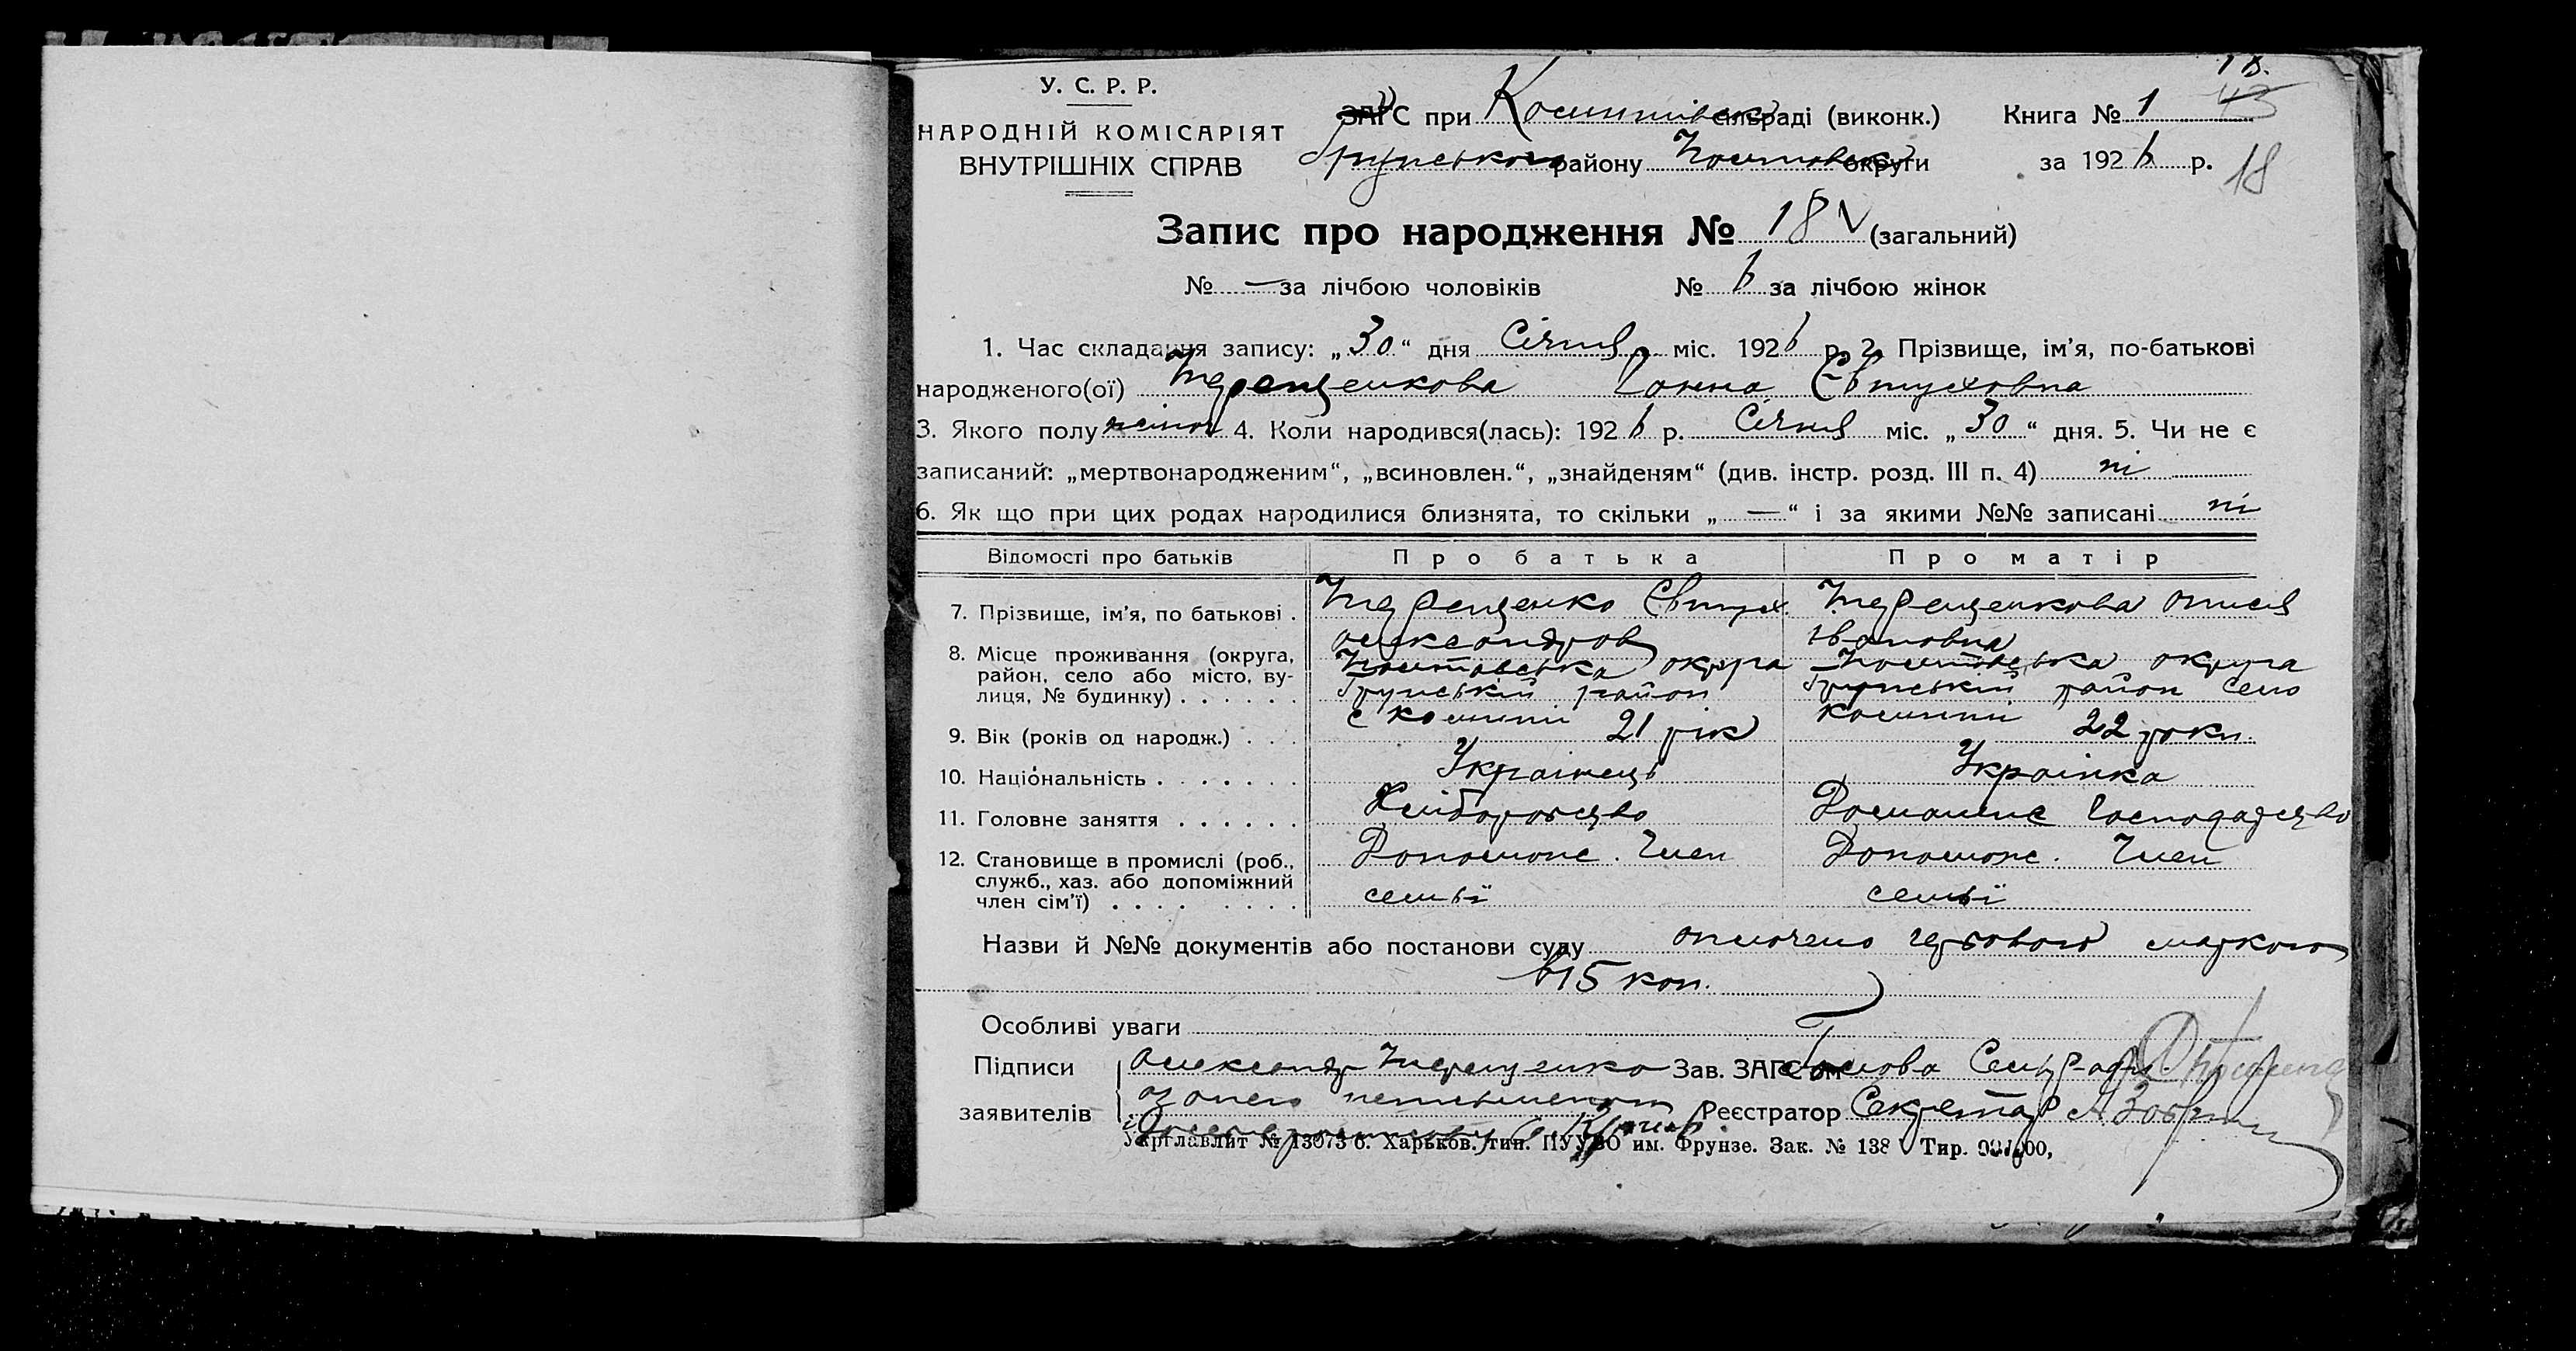 У. С. Р. Р.
НАРОДНІЙ КОМІСАРІЯТ
ВНУТРІШНІХ СПРАВ
ЗАГС при сільраді (виконк.) Книга № 1
району округи за 1926 р.
18
Запис про народження № 18 (загальний)
№ — за лічбою чоловіків № 6 за лічбою жінок
1. Час складання запису: „30“ дня Січня міс. 1926 р. 2. Прізвище, ім’я, по-батькові
народженого(ої) Терещенкова Ганна Євтуховна
3. Якого полу жіноч 4. Коли народився(лась): 1926 р. Січня міс. „30“ дня. 5. Чи не є
записаний: „мертвонародженим“, „всиновлен.“, „знайденям“ (див. інстр. розд. III п. 4) ні
6. Як що при цих родах народилися близнята, то скільки „—“ і за якими №№ записані ні
Відомості про батьків Про батька Про матір
7. Прізвище, ім’я, по батькові . Терещенко Євтух. Терещенкова
олександров івановна
8. Місце проживання (округа, округа округа
район, село або місто, ву- район район село
лиця, № будинку) . . . . . .
9. Вік (років од народж.) . . . 21 рік 22 роки
10. Національність . . . . . . . Українець Українка
11. Головне заняття . . . . . . Хліборобство Домашнє господарство
12. Становище в промислі (роб., Допомож. Член Допомож. Член
служб., хаз. або допоміжний
член сім’ї) . . . . . . . . семьї семьї
Назви й №№ документів або постанови суду оплочено гербовою маркою
в 15 коп.
Особливі уваги
Підписи Олександр Терещенко Зав. ЗАГС’ом Голова Сельради
заявителів за його неписьменого Реєстратор Секретар
Укрглавлит № 13073 б. Харьков. тип. ПУУВО им. Фрунзе. Зак. № 138 Тир.